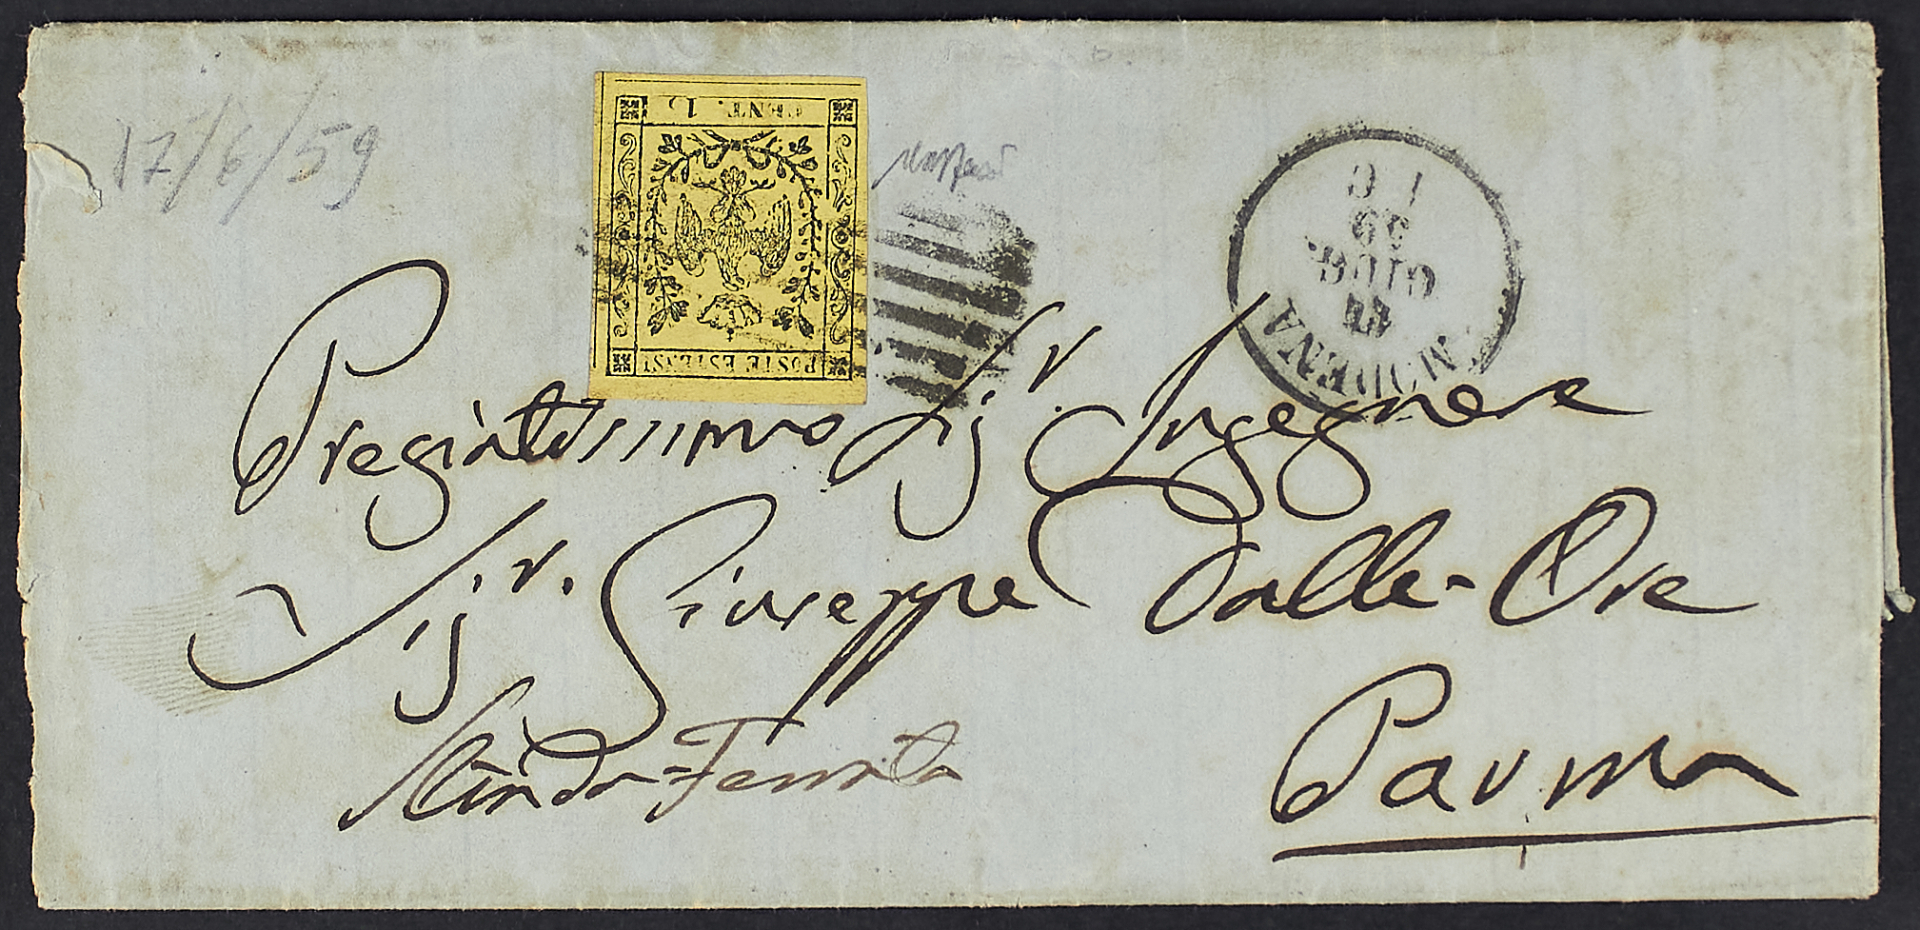 17/6/59
CENT. 15
POSTE ESTENSI
MODENA
17
GIUG.
59
Pregiatissimo Sigr. Ingegnere
Sigr. Giuseppe Dalle-Ore
Parma